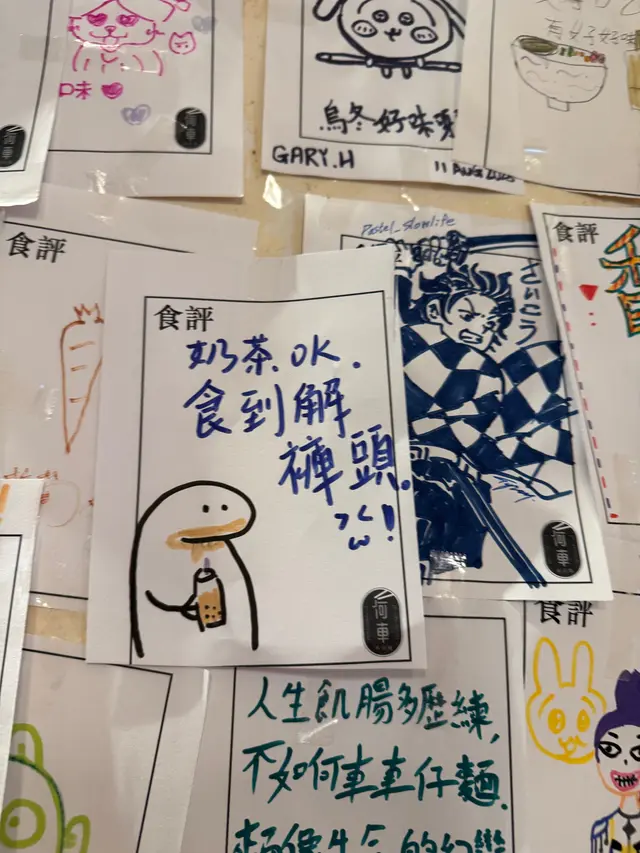 口味
烏冬好味
GARY.H
11 AUG 2025
食評
Pastel_slowlife
さいこう
食評
食評
奶茶OK.
食到解
褲頭.
!
何車
何車
食評
人生飢腸多歷練,
不如何車車仔麵.